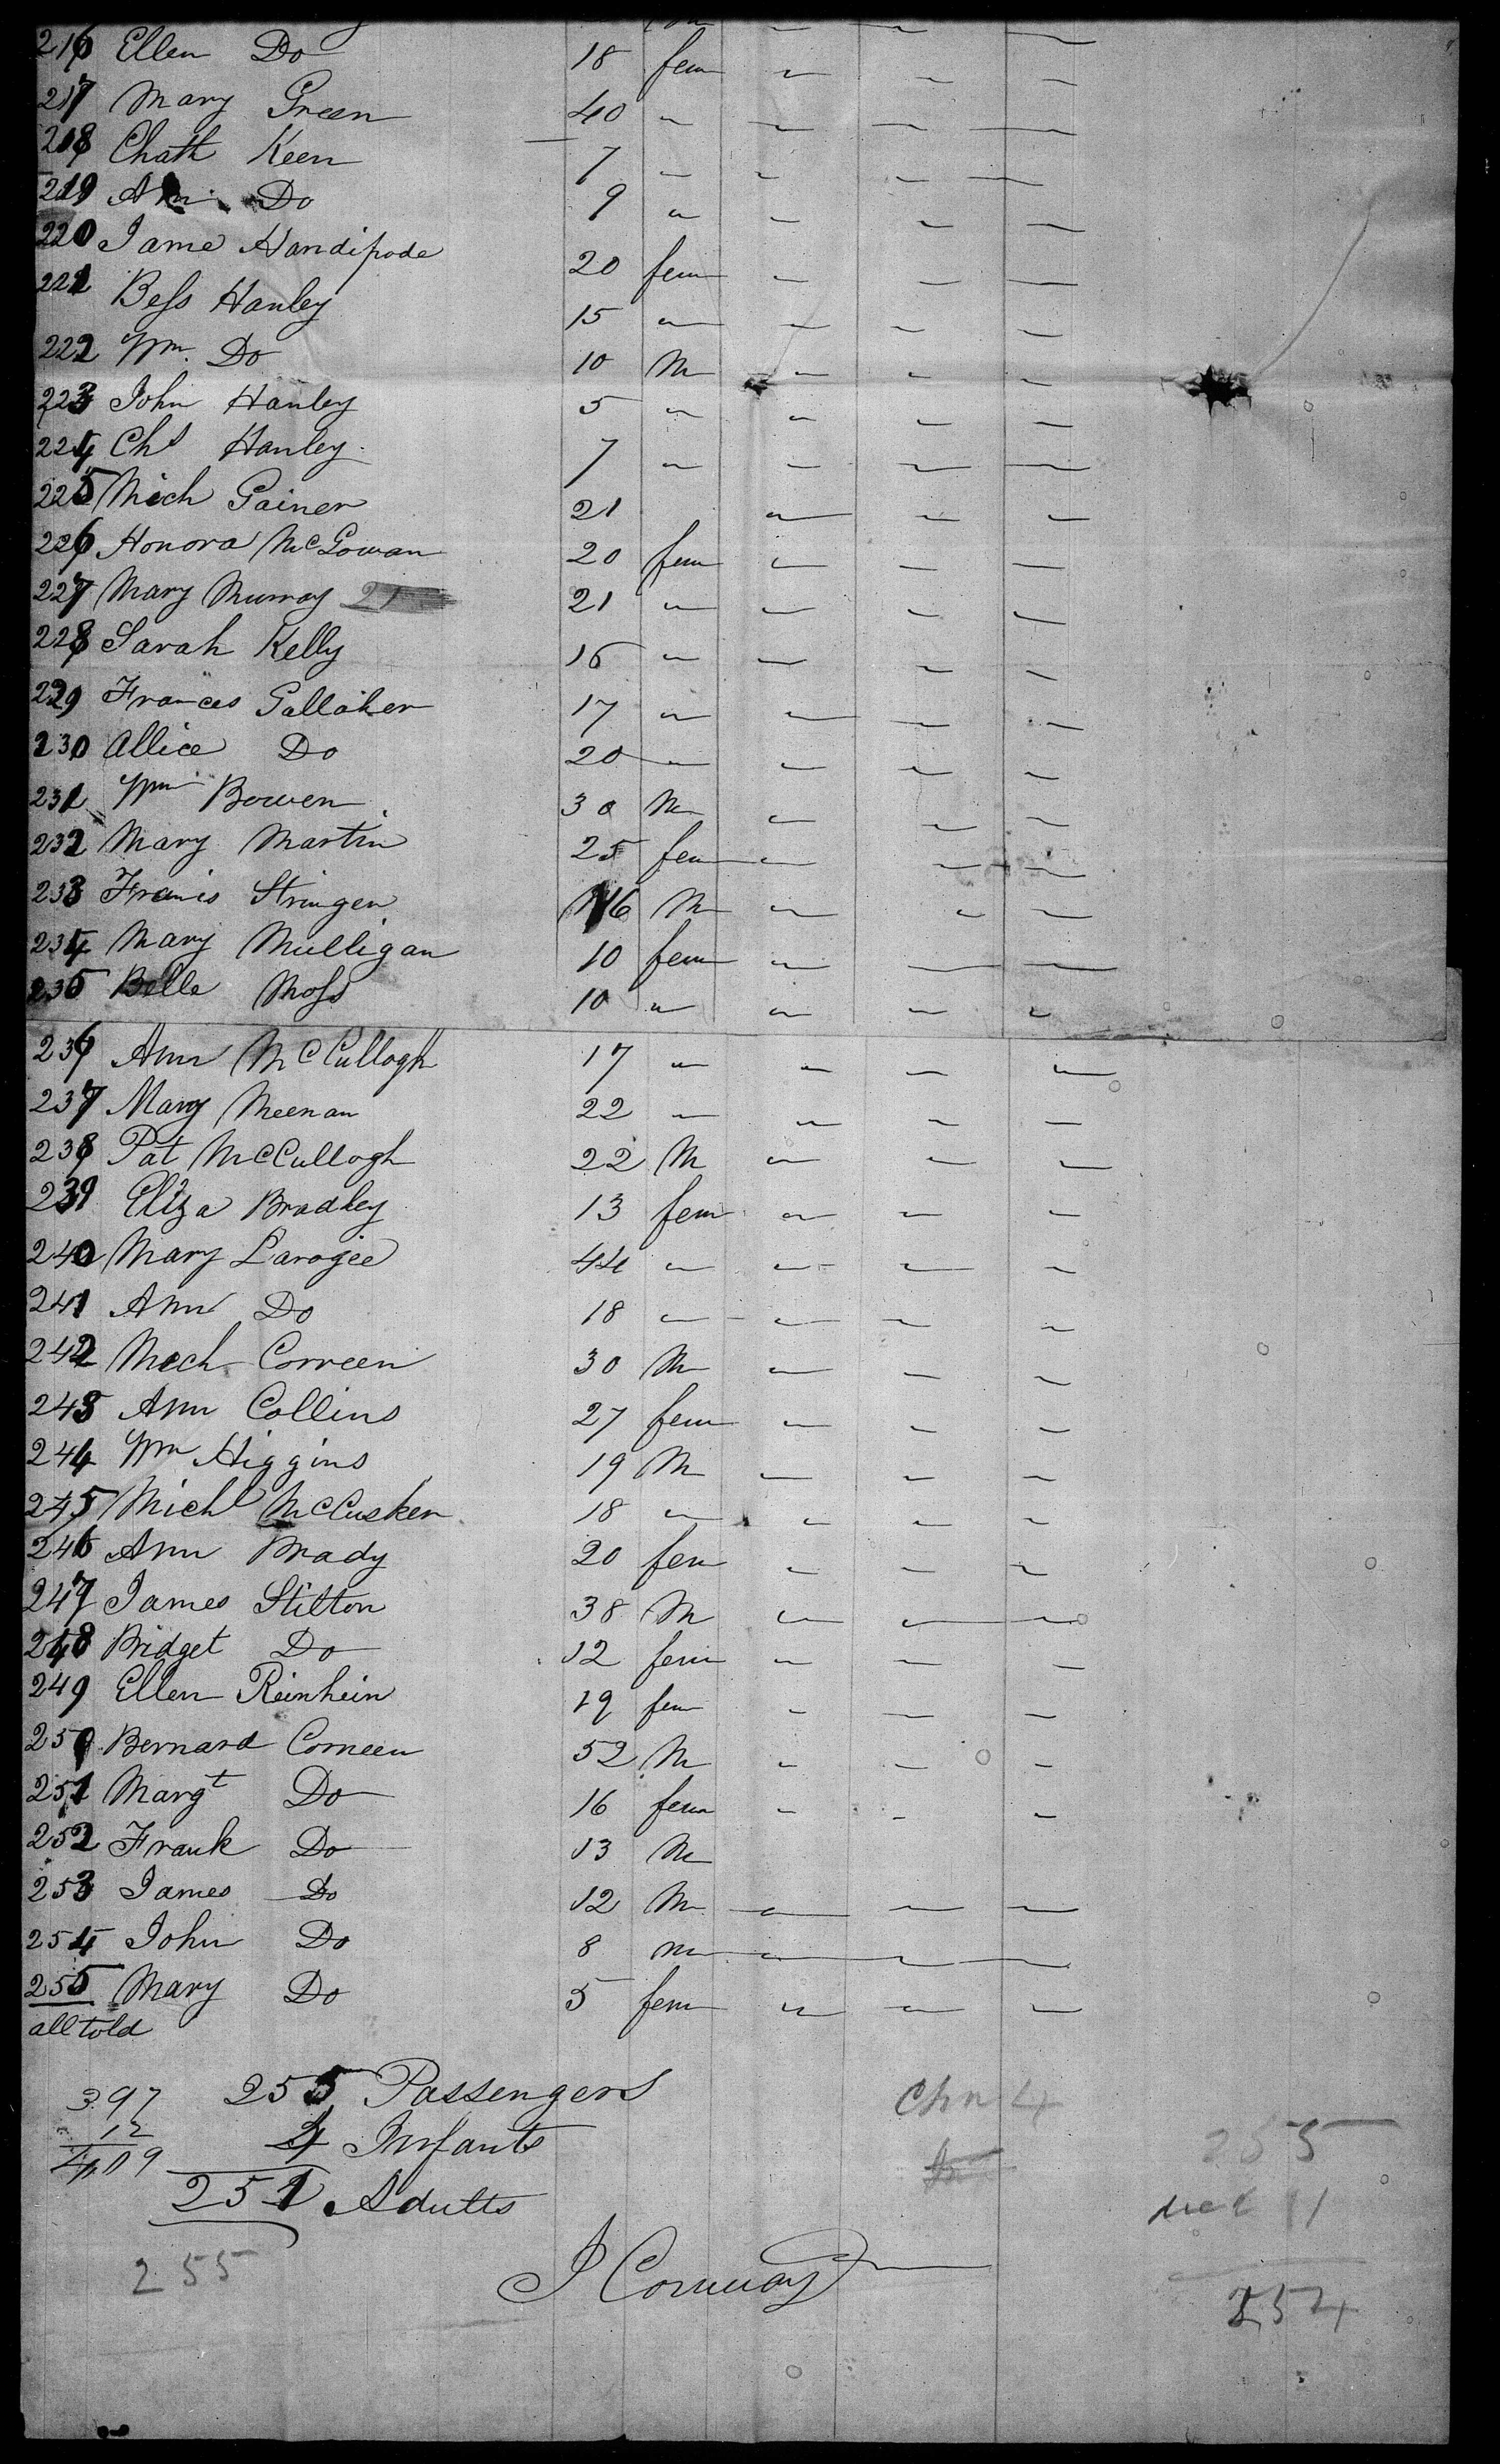 216 Ellen Do 18 fem " " "
217 Mary Green 40 " " " "
218 Chath Keen 7 " " " "
219 Ann Do 9 " " " "
220 Jame Handipode 20 fem " " "
221 Bess Hanley 15 " " " "
222 Wm. Do 10 M " " "
223 John Hanley 5 " " " "
224 Chs Hanley 7 " " " "
225 Mich Gainer 21 " " "
226 Honora McGowan 20 fem " " "
227 Mary Murray 21 21 " " " "
228 Sarah Kelly 16 " " " "
229 Frances Gallaher 17 " " " "
230 Allice Do 20 " " " "
231 Wm Bowen 30 M " " "
232 Mary Martin 25 fem " " "
233 Francis Stringer 16 M " " "
234 Mary Mulligan 10 fem " " "
235 Belle Moss 10 " " " "
236 Ann McCullogh 17 " " " "
237 Mary Meenan 22 " " " "
238 Pat McCullogh 22 M " " "
239 Eliza Bradley 13 fem " " "
240 Mary Larogee 44 " " " "
241 Ann Do 18 " " " "
242 Mich Corneen 30 M " " "
243 Ann Collins 27 fem " " "
244 Wm Higgins 19 M " " "
245 Michl McCusker 18 " " " "
246 Ann Brady 20 fem " " "
247 James Stilton 38 M " " "
248 Bridget Do 12 fem " " "
249 Ellen Reinhein 19 fem " " "
250 Bernard Corneen 52 M " " "
251 Margt Do 16 fem " " "
252 Frank Do 13 M
253 James Do 12 M " " "
254 John Do 8 m " " "
255 Mary Do 5 fem " " "
all told
397 255 Passengers Chn 4
12 4 Infants 255
409 251 Adults 11
255 J Conway
254